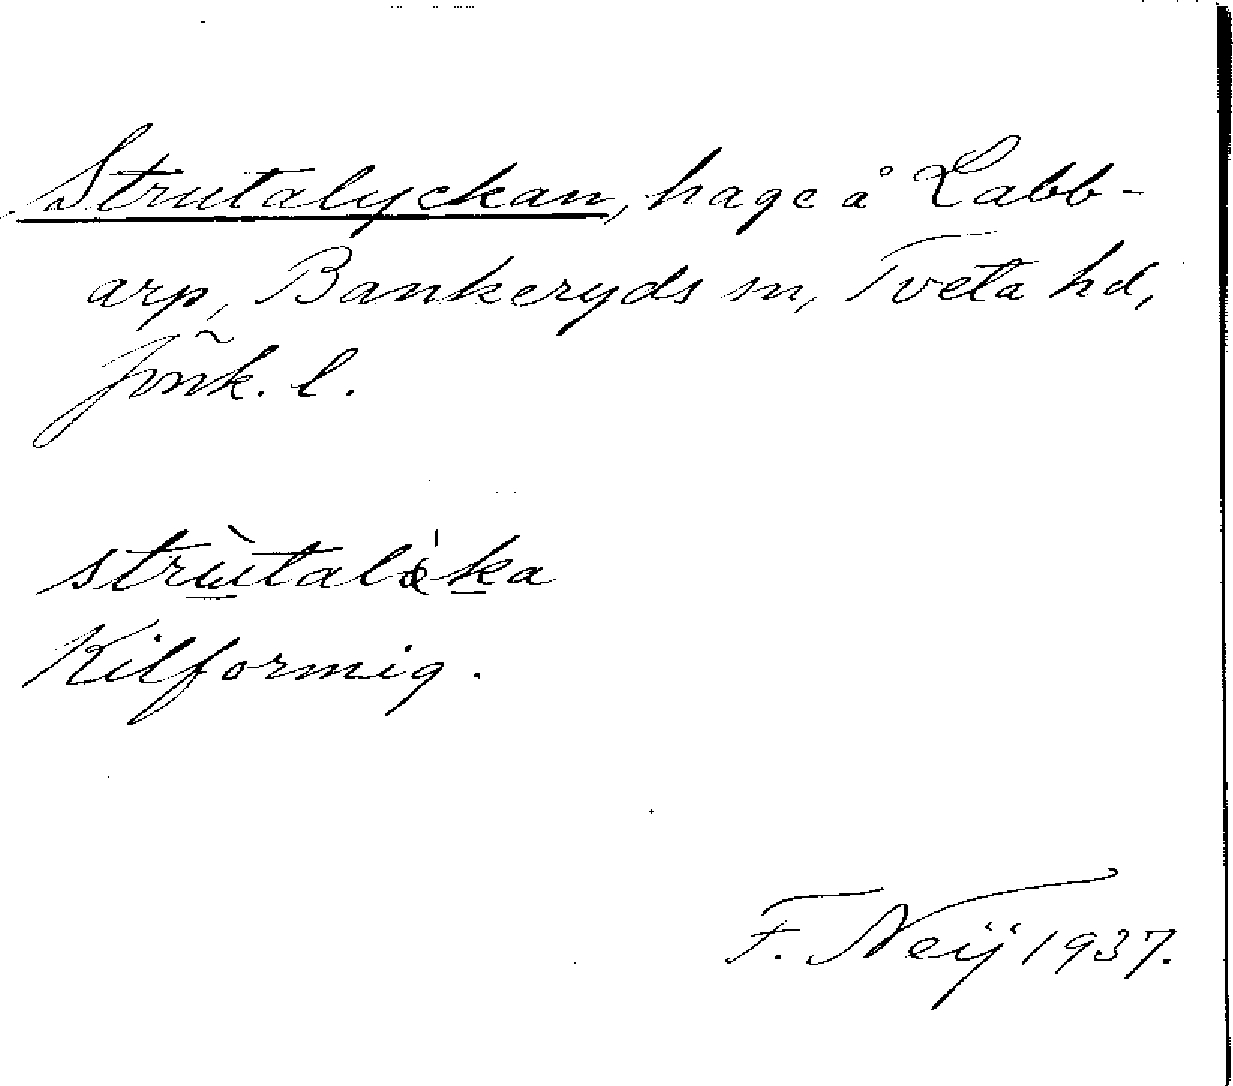 Strutalyckan, hage å Labb-
arp, Bankeryds sn, Tveta hd,
Jönk. l.
strùtalø̀ka
Kilformig.
F. Neij 1937.